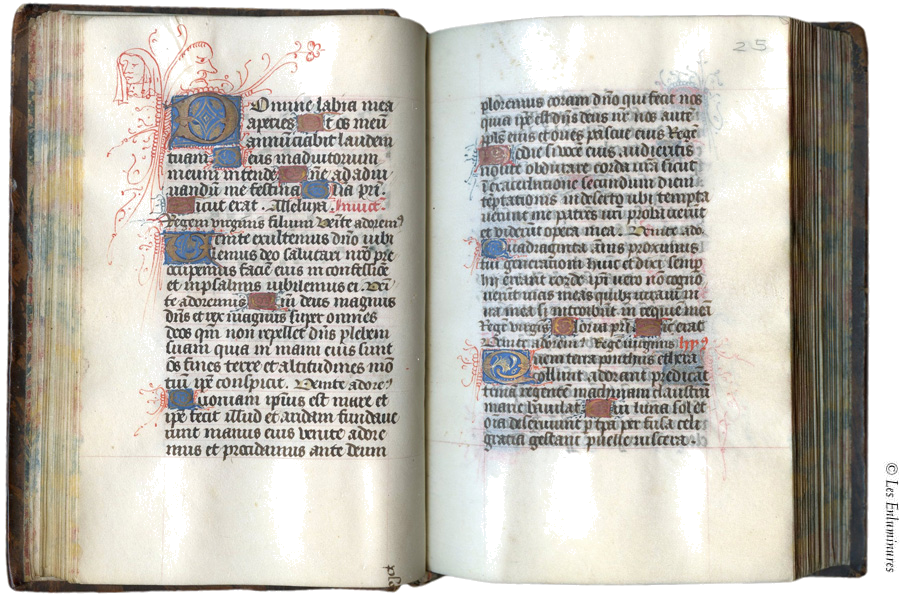 Domine labia mea
aperies Et os meū
annunciabit laudem
tuam Deus in adiutorium
meum intende Dñe ad adiu
uandū me festina Gl̄ia pri.
Sicut erat. Alleluya. Inuit'.
Regem virginis filium Venite adorem'
Uenite exultemus dño iubi
lemus deo salutari nr̄o p̄re
occupemus faciē eius in confessiōe
et in psalmis iubilemus ei. Veni
te adoremus Qm̄ deus magnus
dñs et rex magnus super omnes
deos qm̄ non repellet dñs plebem
suam quia in manu eius sunt
oēs fines terre et altitudines mō
tiū ip̄e conspicit. Venite adore'
Quoniam ipsius est mare et
ip̄e fecit illud et aridam fundaue
runt manus eius venite adore
mus et procidamus ante deum
25
ploremus coram dño qui fecit nos
quia ip̄e est dñs deus nr̄ nos autē
pp̄ls eius et oues pascue eius Regē
Hodie si vocē eius audieritis
nolite obdurare corda vr̄a sicut
in exacerbatione secundum diem
tēptationis in deserto ubi tempta
uerunt me patres vr̄i probauerūt
et viderūt opera mea. Venite ado.
Quadraginta ānis proximus
fui generationi huic et dixi semp̄
hij errant corde ip̄i vero nō cogno
uerūt vias meas quibz iuraui in
ira mea si introibūt in requiē meā
Regē virgīs Gloria pr̄i Sicut erat
Venite adorem' Regē virginis hyp'
Quem terra ponthus ethera
collunt adorant predicāt
trinā regentē machinam claustrū
marie baiulat Cui luna sol et
oīa deseruiunt p̄ tp̄a perfusa celi
gratia gestant puelle viscera.
© Les Enluminures